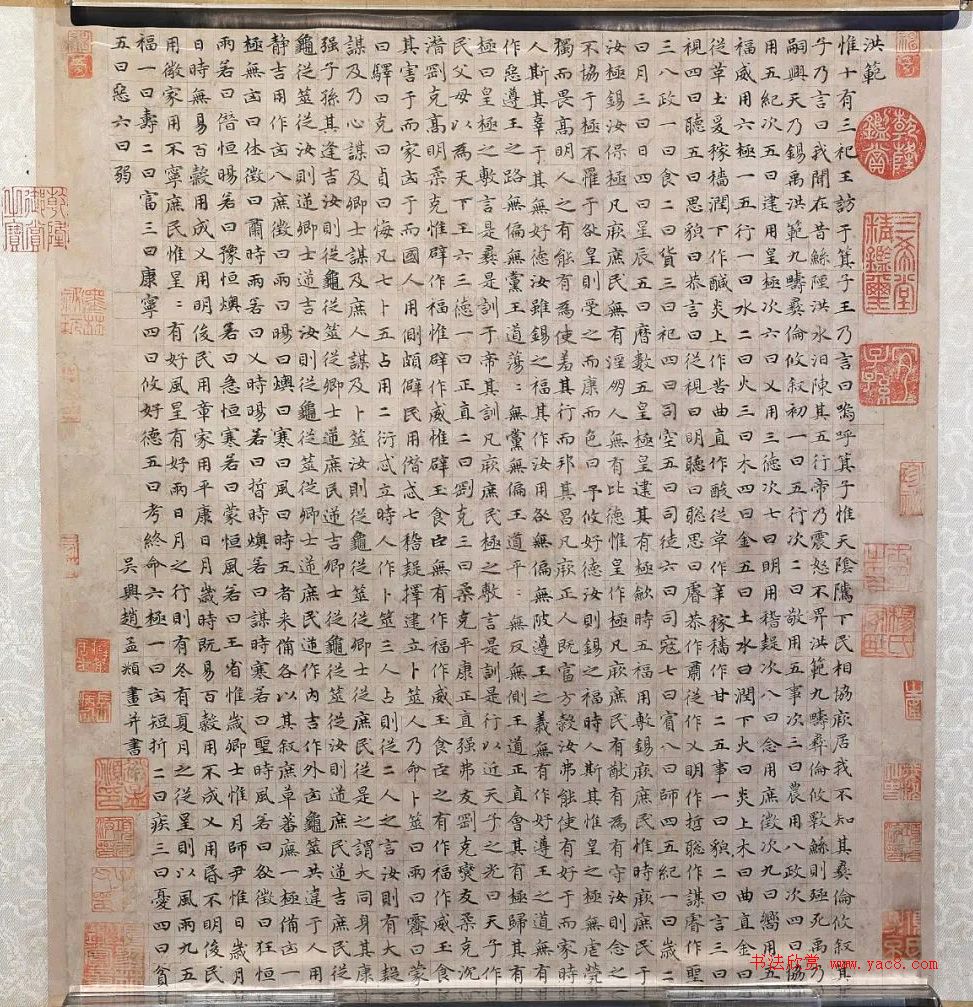 洪範
惟十有三祀王訪于箕子王乃言曰嗚呼箕子惟天陰騭下民相協厥居我不知其彝倫攸叙箕
子乃言曰我聞在昔鯀陻洪水汩陳其五行帝乃震怒不畀洪範九疇彝倫攸斁鯀則殛死禹乃
嗣興天乃錫禹洪範九疇彝倫攸叙初一曰五行次二曰敬用五事次三曰農用八政次四曰協
用五紀次五曰建用皇極次六曰乂用三德次七曰明用稽疑次八曰念用庶徵次九曰嚮用五
福威用六極一五行一曰水二曰火三曰木四曰金五曰土水曰潤下火曰炎上木曰曲直金曰
從革土爰稼穡潤下作鹹炎上作苦曲直作酸從革作辛稼穡作甘二五事一曰貌二曰言三曰
視四曰聽五曰思貌曰恭言曰從視曰明聽曰聰思曰睿恭作肅從作乂明作哲聰作謀睿作聖
三八政一曰食二曰貨三曰祀四曰司空五曰司徒六曰司寇七曰賓八曰師四五紀一曰歲二
曰月三曰日四曰星辰五曰曆數五皇極皇建其有極歛時五福用敷錫厥庶民惟時厥庶民于
汝極錫汝保極凡厥庶民無有淫朋人無有比德惟皇作極凡厥庶民有猷有為有守汝則念之
不協于極不罹于咎皇則受之而康而色曰予攸好德汝則錫之福時人斯其惟皇之極無虐煢
獨而畏高明人之有能有為使羞其行而邦其昌凡厥正人既富方穀汝弗能使有好于而家時
人斯其辜于其無好德汝雖錫之福其作汝用咎無偏無陂遵王之義無有作好遵王之道無有
作惡遵王之路無偏無黨王道蕩:無黨無偏王道平:無反無側王道正直會其有極歸其有
極曰皇極之敷言是彝是訓于帝其訓凡厥庶民極之敷言是訓是行以近天子之光曰天子作
民父母以為天下王六三德一曰正直二曰剛克三曰柔克平康正直强弗友剛克燮友柔克沉
潛剛克高明柔克惟辟作福惟辟作威惟辟玉食臣無有作福作威玉食臣之有作福作威玉食
其害于而家凶于而國人用側頗僻民用僭忒七稽疑擇建立卜筮人乃命卜筮曰雨曰霽曰蒙
曰驛曰克曰貞曰悔凡七卜五占用二衍忒立時人作卜筮三人占則從二人之言汝則有大疑
謀及乃心謀及卿士謀及庶人謀及卜筮汝則從龜從筮從卿士從庶民從是之謂大同身其康
强子孫其逢吉汝則從龜從筮從卿士逆庶民逆吉卿士從龜從筮從汝則逆庶民逆吉庶民從
龜從筮從汝則逆卿士逆吉汝則從龜從筮逆卿士逆庶民逆作內吉作外凶龜筮共違于人用
静吉用作凶八庶徵曰雨曰暘曰燠曰寒曰風曰時五者来備各以其叙庶草蕃廡一極備凶一
極無凶曰休徵曰肅時雨若曰乂時暘若曰哲時燠若曰謀時寒若曰聖時風若曰咎徵曰狂恒
雨若曰僭恒暘若曰豫恒燠若曰急恒寒若曰蒙恒風若曰王省惟歲卿士惟月師尹惟日歲月
日時無易百穀用成乂用明俊民用章家用平康日月歲時既易百穀用不成乂用昏不明俊民
用微家用不寧庶民惟星:有好風星有好雨日月之行則有冬有夏月之從星則以風雨九五
福一曰壽二曰富三曰康寧四曰攸好德五曰考終命六極一曰凶短折二曰疾三曰憂四曰貧
五曰惡六曰弱
吳興趙孟頫畫并書
乾隆鑑賞
三希堂精鑑璽
宜子孫
乾隆御賞之寶
书法欣赏 www.yac8.com